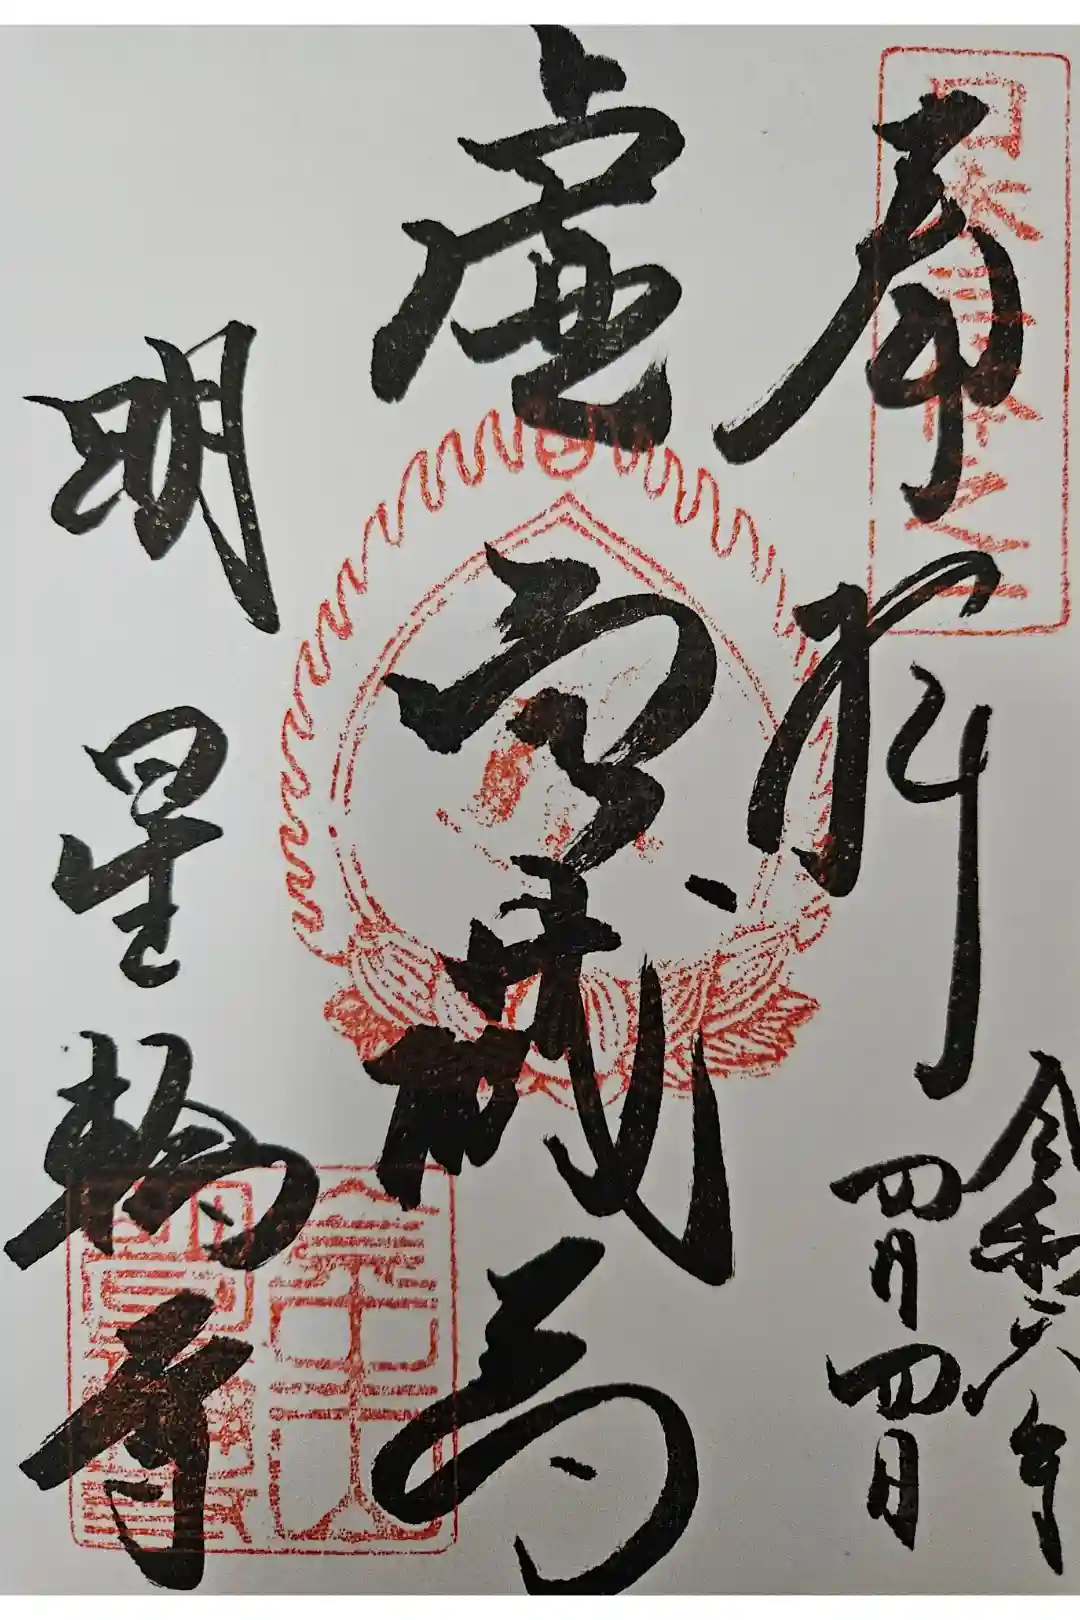 奉拝
令和六年
四月四日
虚空蔵尊
明星輪寺